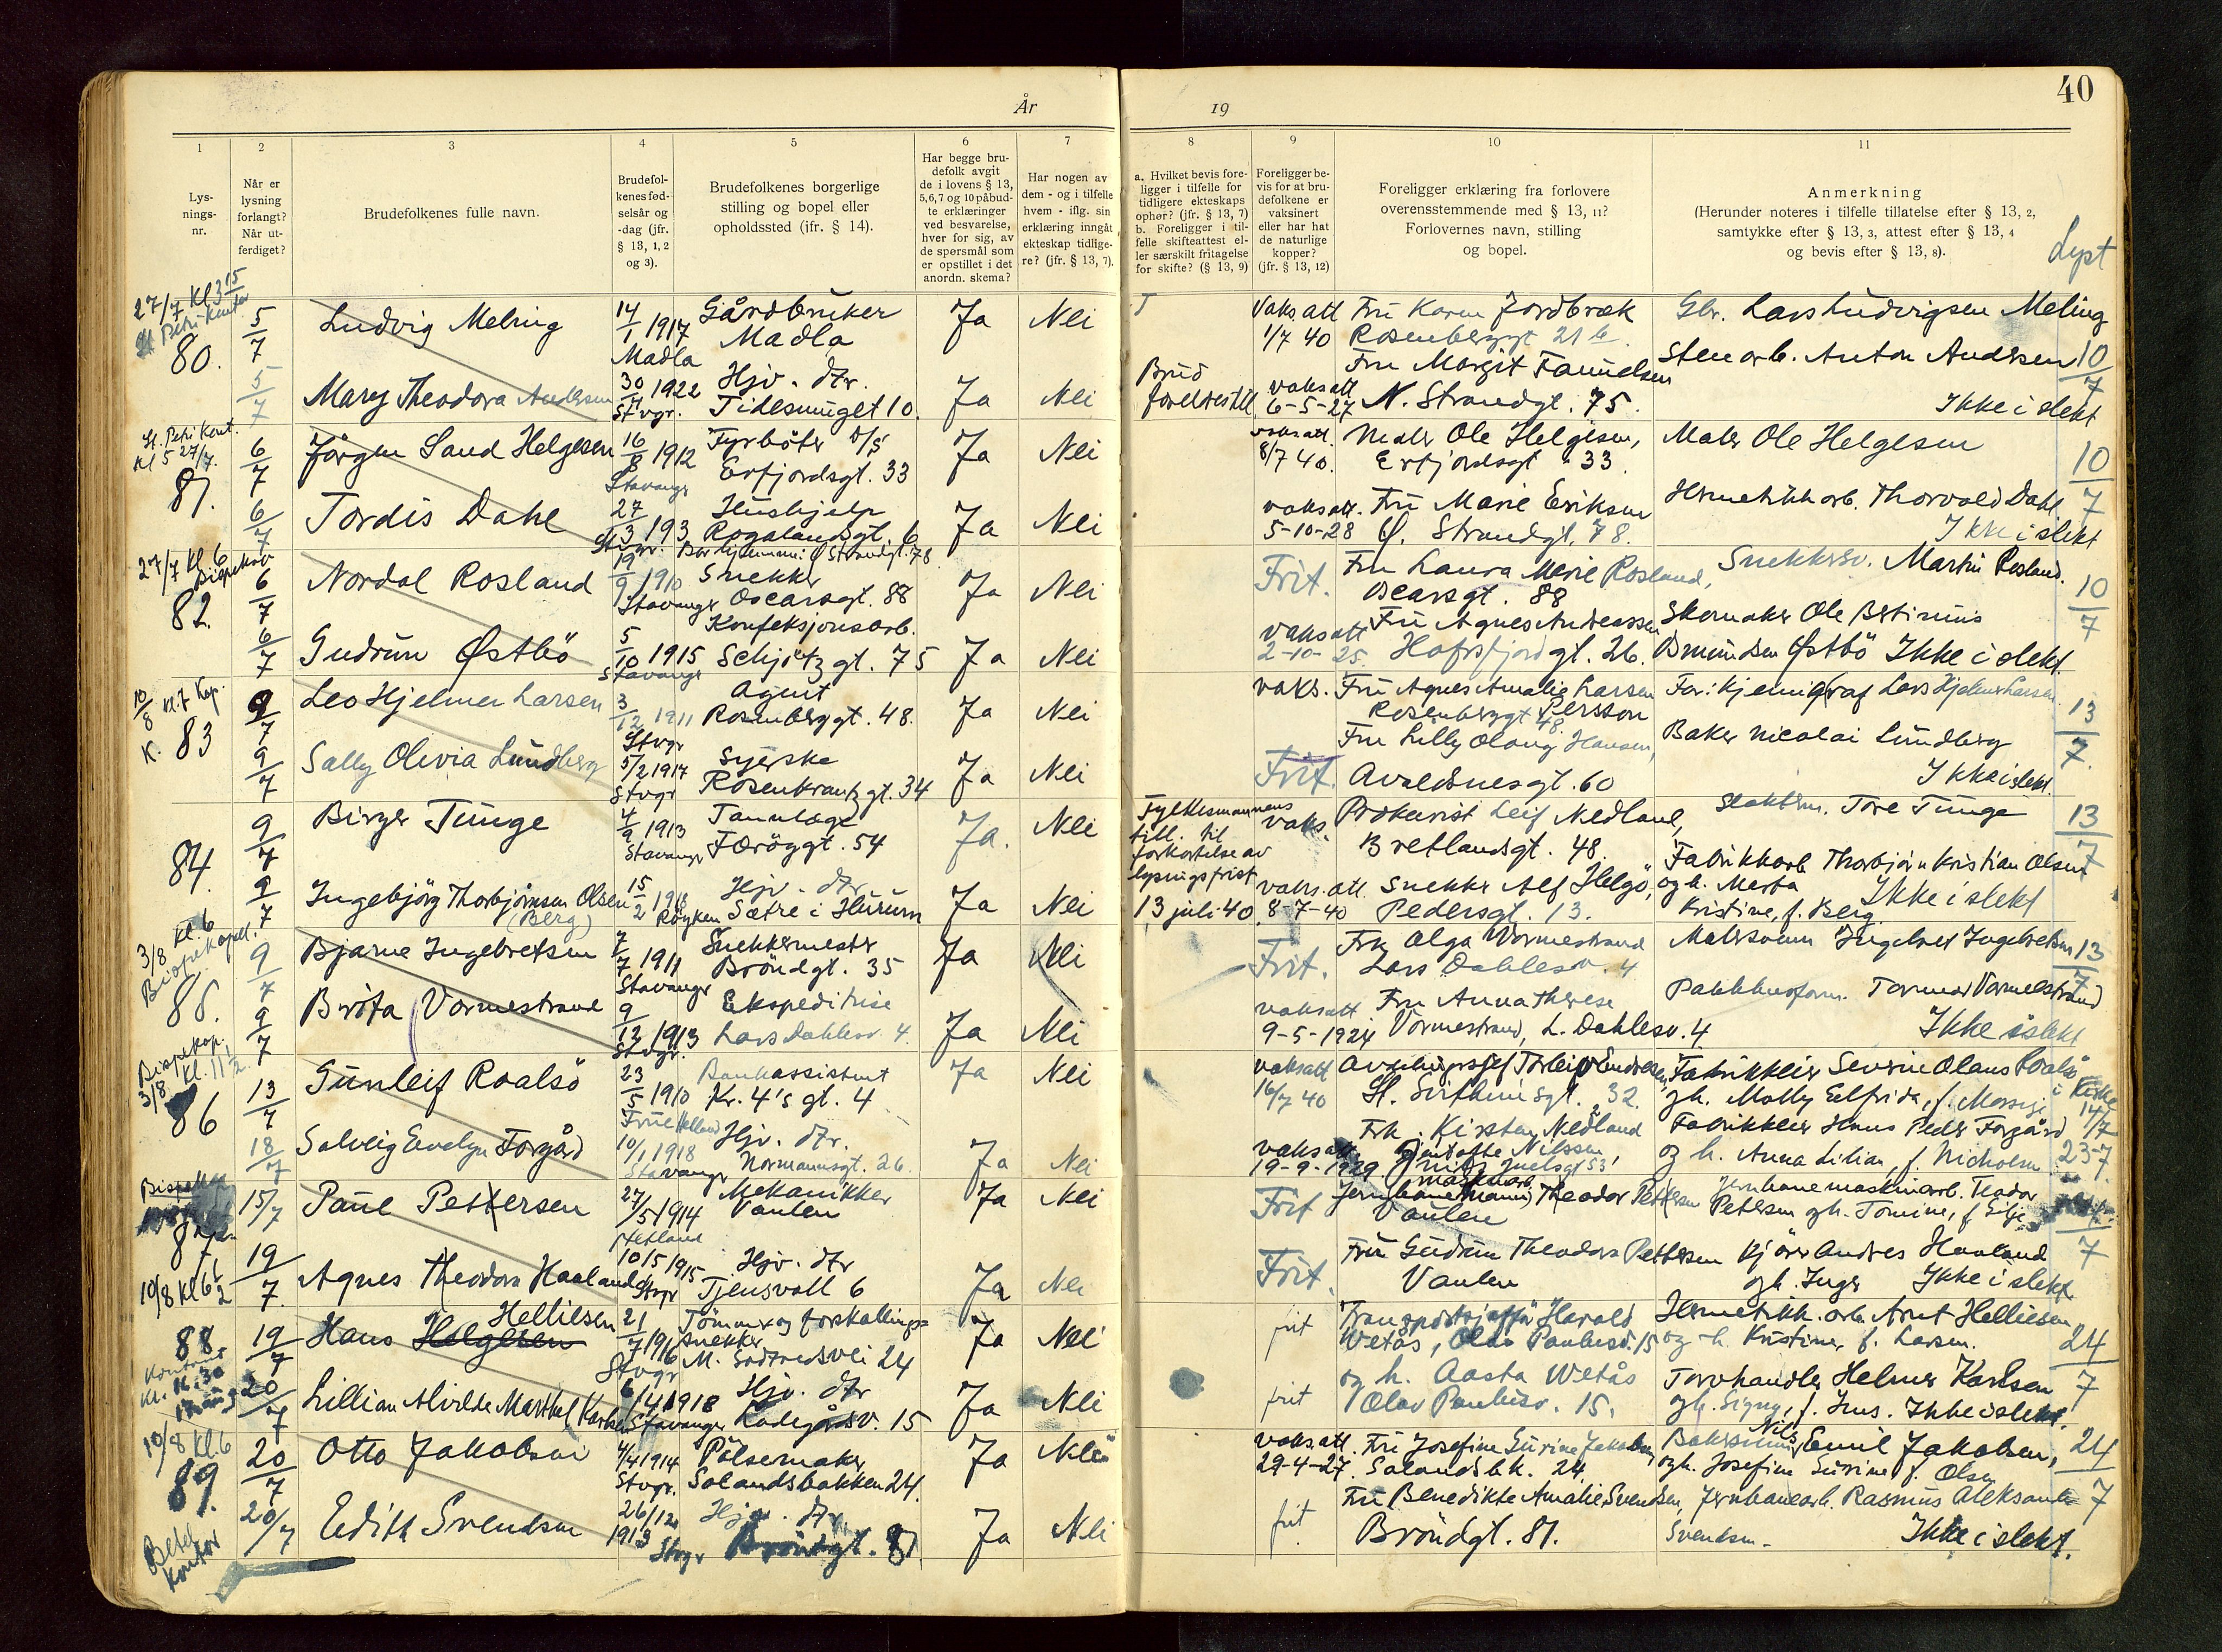 År
19
40
1
2
3
4
5
6
7
8
9
10
11
Lys-
nings-
nr.
Når er
lysning
forlangt?
Når ut-
ferdiget?
Brudefolkenes fulle navn.
Brudefol-
kenes fød-
selsår og
-dag (jfr.
§ 13, 1, 2
og 3).
Brudefolkenes borgerlige
stilling og bopel eller
opholdssted (ifr. § 14).
Har begge bru-
defolk avgit
de i lovens § 13,
5,6,7 og 10 påbud-
te erklæringer
ved besvarelse,
hver for sig, av
de spørsmål som
er opstillet i det
anordn. skema?
Har nogen av
dem - og i tilfelle
hvem - iflg. sin
erklæring inngått
ekteskap tidlige-
re? (jfr. § 13, 7).
a. Hvilket bevis fore-
ligger i tilfelle for
tidligere ekteskaps
ophør? (jfr. § 13, 7)
b. Foreligger i til-
felle skifteattest el-
ler særskilt fritagelse
for skifte? (§ 13, 9)
Foreligger be-
vis for at bru-
defolkene er
vaksinert
eller har hat
de naturlige
kopper?
(jfr. § 13, 12)
Foreligger erklæring fra forlovere
overensstemmende med § 13, 11?
Forlovernes navn, stilling
og bopel.
Anmerkning
(Herunder noteres i tilfelle tillatelse efter § 13, 2,
samtykke efter § 13, 3, attest efter § 13, 4
og bevis efter § 13, 8).
Lyst
27/7 Kl 3 15
St Petri Kont.
80.
5/7
Ludvig Meling
14/1 1917
Madla
Gårdbruker
Madla
Ja
Nei
Vaks. att
1/7 40
Fru Karen Jordbræk
Rosenberggt 21 b
Gbr. Lars Ludvigsen Meling
5/7
Mary Theodora Andersen
30/7 1922
Stvgr.
Hjv. dtr.
Tidesmuget 10.
Ja
Nei
Brud
vaks att
6-5-27
Fru Margit
N. Strandgt. 75.
Stenarb. Anton Andersen
Ikke i slekt
10/7
St. Petri Kont.
Kl 5 27/7.
81.
6/7
Jörgen Sand Helgesen
16/8 1912
Stavanger
Fyrböter
Erfjordsgt. 33
Ja
Nei
vaks att.
8/7 40.
Maler Ole Helgesen,
Erfjordsgt 33.
Maler Ole Helgesen
10/7
6/7
Tordis Dahl
27/3 193
Stvgr.
Hushjelp
Rogalandsgt. 6
Strandgt. 78
Ja
Nei
vaks att.
5-10-28
Fru Marie Eriksen
Ø. Strandgt. 78.
Hermetikk arb. Thorvald Dahl
Ikke i slekt
27/7 Kl. 6
82.
6/7
Nordal Rosland
19/9 1910
Stavanger
Snekker
Oscarsgt. 88
Ja
Nei
Frit.
Fru Laura Marie Rosland,
Oscarsgt. 88
Snekkersv. Martin Rosland.
10/7
6/7
Gudrun Østbö
5/10 1915
Stavanger
Konfeksjonsarb.
Schjötz gt. 75
Ja
Nei
vaks att
2-10-25.
Fru Agnes Andreassen
Hafrsfjordgt. 26.
Skomaker Ole
Østbö Ikke i slekt.
10/8 Kl. 7 Kap.
K. 83
9/7
Leo Hjelmer Larsen
3/12 1911
Stvgr
Agent
Rosenberggt. 48.
Ja
Nei
vaks.
Fru Agnes Amalie Larsen
Persson
Rosenberggt 48.
Far: Kjemigraf Lars Hjelmer Larsen
13/7
9/7
Sally Olivia Lundberg
5/2 1917
Stvgr
Syerske
Rosenkrantzgt. 34
Ja
Nei
Frit.
Fru Lilly Olaug Hansen,
Avaldsnesgt. 60
Baker Nicolai Lundberg
Ikke i slekt.
84.
9/7
Birger Tunge
4/9 1913
Stavanger
Tannlæge
Færöygt. 54
Ja.
Nei
Fylkesmannens
till. til
forkortelse av
lysningsfrist
13 juli-40
vaks.
Prokurist Leif Nedland,
Bretlandsgt. 48
Tore Tunge
13/7
9/7
Ingebjörg Thorbjörnsen Olsen
(Berg)
15/2 1918
Röyken
Hjv. dtr
Sætre i Hurum
Ja
Nei
vaks. att
8-7-40
Snekker Alf Helgö,
Pedersgt. 13.
Fabrikkarb Thorbjörn Kristian Olsen
og h. Marta
Kristine, f. Berg.
Ikke i slekt
3/8 Kl. 6
Bispekapell.
85.
9/7
Bjarne Ingebretsen
7/7 1911
Stavanger
Snekkermester
Bröndgt. 35
Ja
Nei
Frit.
Frk Olga Vormestrand
Lars Dahlesv. 4
Malersvenn Ingebret Ingebretsen
13/7
9/7
Brita Vormestrand
9/12 1913
Stvgr.
Ekspeditrise
Lars Dahlesv. 4.
Ja
Nei
vaks att
9-5-1924
Fru Anna Therese
Vormestrand, L. Dahlesv. 4
Pakkhusform. Tormod Vormestrand
Ikke i slekt
Bispekap.
3/8 Kl. 11 1/2
86
13/7
Gunleif Roalsö
23/5 1910
Bankassistent
Kr. 4's gt. 4
Ja
Nei
vaks att
16/7 40
Avdelingssjef Torleiv Endresen,
St. Svithunsgt. 32.
Fabrikkeier Severin Olaus Roalsö
gh. Molly Elfrida, f.
14/7
18/7
Solveig Evelyn Torgård
10/1 1918
Stavanger
Hjv. dtr.
Normannsgt. 26.
Ja
Nei
vaks att.
19-9-1929
Frk. Kirsten Nedland
Nilssen,
Fabrikkeier Hans Peder Torgård
og h. Anna Lilian, f. Nicholsen
23-7.
87
15/7
Paul Pettersen
27/5 1914
Hetland
Mekanikker
Vaulen
Ja
Nei
Frit
Theodor Pettersen
Vaulen
Jernbanemaskinarb. Teodor
Petersen gh. Tomine, f. Eije
7
10/8 Kl 6 1/2
19/7.
Agnes Theodora Haaland
10/5 1915
Stvgr
Hjv. dtr
Tjensvoll 6
Ja
Nei
Frit.
Fru Gudrun Theodora Pettersen
Vaulen
Kjörer Andres Haaland
gh. Inger Ikke i slekt.
88
Kontoret
Kl. 14.30
17 aug.
19/7
Hans Helgesen Helliesen
21/7 1916
Stvgr
Tömmer og forskallings=
snekker
M. Sødtredsvei 24
Ja
Nei
frit
Harald
Wetås, Olav Paulusv. 15
Hermetikk. arb. Arnt Helliesen
og h. Kristine, f. Larsen.
24/7
20/7
Lillian Alvilde Marthel Karlsen
6/4 1918
Stavanger
Hjv. dtr
Ladegårdsv. 15
Ja
Nei
frit
og h. Aasta Wetås
Olav Paulusv. 15.
Torvhandler Helmer Karlsen
gh. Signy, f. Jus. Ikke i slekt.
10/8 Kl. 6
89.
20/7
Otto Jakobsen
4/4 1914
Stvgr.
Pölsemaker
Solandsbakken 24.
Ja
Nei
vaks. att.
29-4-27.
Fru Josefine Surine Jakobsen
Solandsbk. 24
Nils
Emil Jakobsen,
ogh. Josefine Surine f. Olsen
24/7
Betel
Kontor
20/7
Edith Svendsen
26/12
1913
Stvgr
Hjv. dtr.
Bröndgt. 81
Ja
Nei
frit
Fru Benedikte Amalie Svendsen,
Bröndgt. 81.
Jernbanearb. Rasmus Aleksander
Svendsen.
Ikke i slekt.